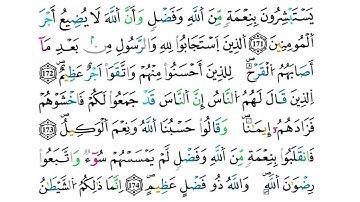 يَسْتَبْشِرُونَ بِنِعْمَةٍ مِّنَ ٱللَّهِ وَفَضْلٍ وَأَنَّ ٱللَّهَ لَا يُضِيعُ أَجْرَ
ٱلْمُؤْمِنِينَ ١٧١ ٱلَّذِينَ ٱسْتَجَابُوا۟ لِلَّهِ وَٱلرَّسُولِ مِنۢ بَعْدِ مَآ
أَصَابَهُمُ ٱلْقَرْحُ ۚ لِلَّذِينَ أَحْسَنُوا۟ مِنْهُمْ وَٱتَّقَوْا۟ أَجْرٌ عَظِيمٌ ١٧٢
ٱلَّذِينَ قَالَ لَهُمُ ٱلنَّاسُ إِنَّ ٱلنَّاسَ قَدْ جَمَعُوا۟ لَكُمْ فَٱخْشَوْهُمْ
فَزَادَهُمْ إِيمَٰنًا وَقَالُوا۟ حَسْبُنَا ٱللَّهُ وَنِعْمَ ٱلْوَكِيلُ ١٧٣
فَٱنقَلَبُوا۟ بِنِعْمَةٍ مِّنَ ٱللَّهِ وَفَضْلٍ لَّمْ يَمْسَسْهُمْ سُوٓءٌ وَٱتَّبَعُوا۟
رِضْوَٰنَ ٱللَّهِ ۗ وَٱللَّهُ ذُو فَضْلٍ عَظِيمٍ ١٧٤ إِنَّمَا ذَٰلِكُمُ ٱلشَّيْطَٰنُ